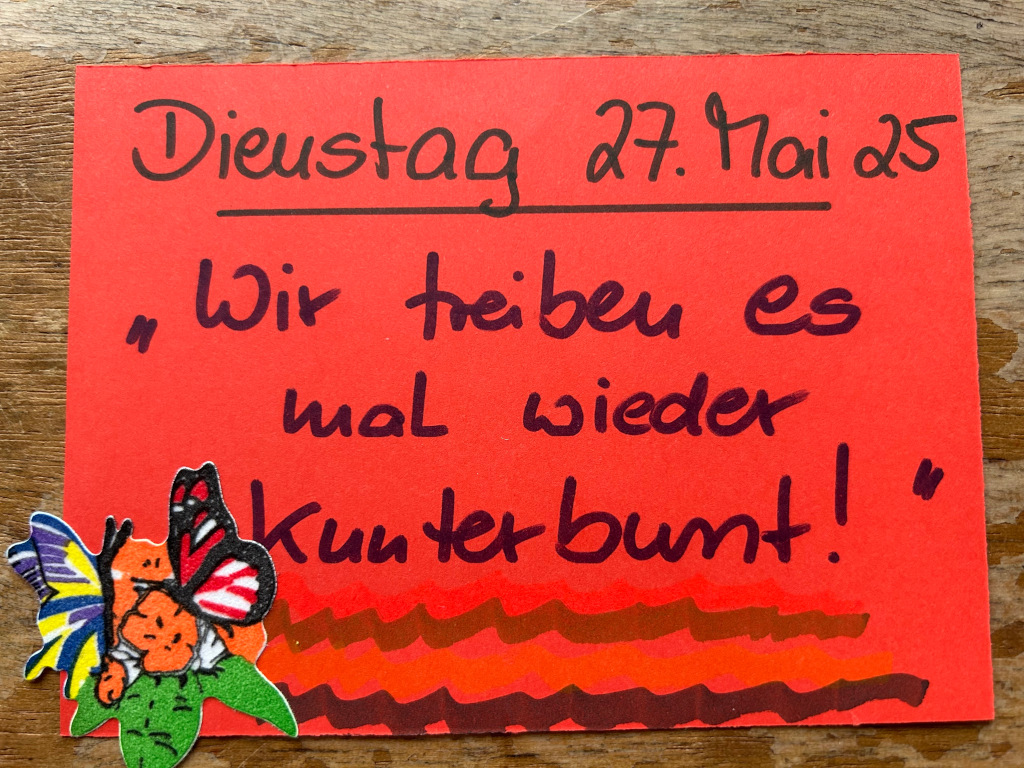 Dienstag 27. Mai 25
„Wir treiben es
mal wieder
Kunterbunt!"